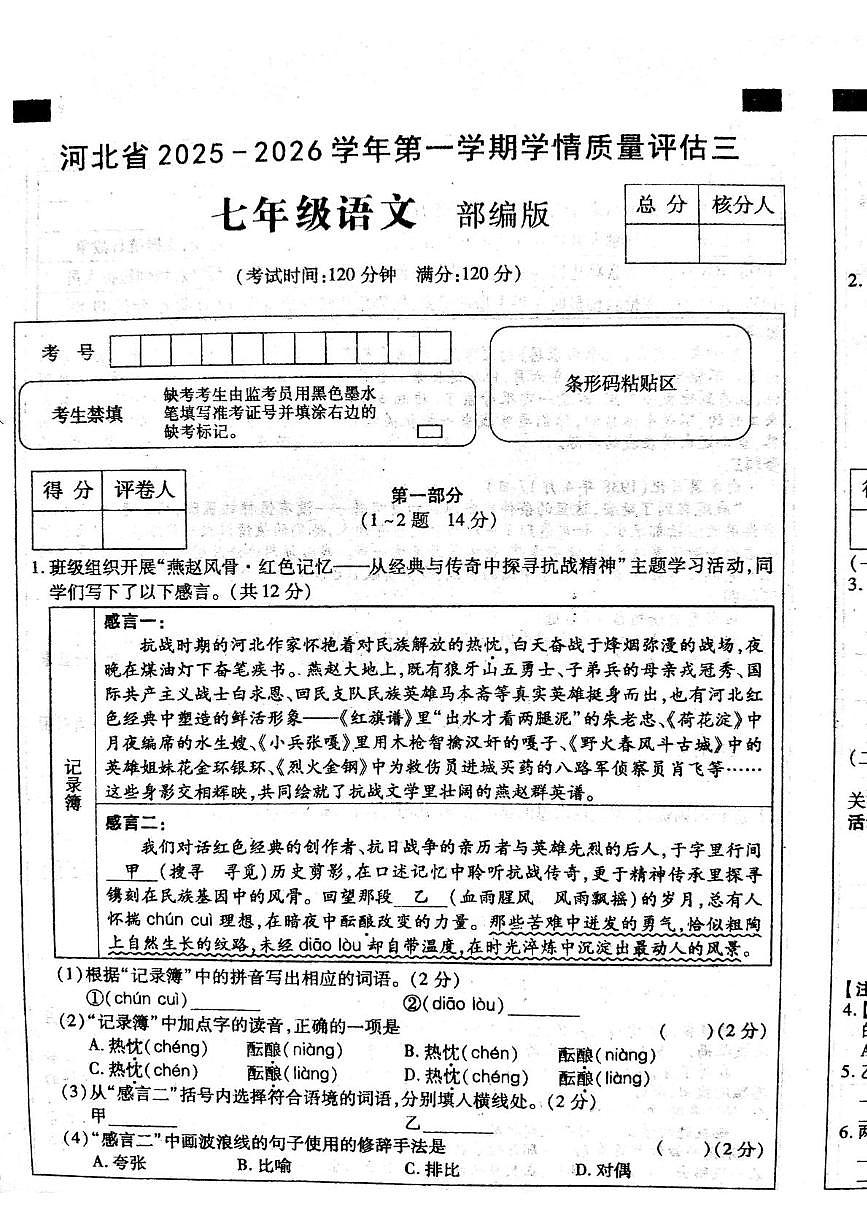 河北省2025-2026学年第一学期学情质量评估三
七年级语文 部编版
总 分 核分人
(考试时间:120分钟 满分:120分)
考 号
条形码粘贴区
考生禁填
缺考考生由监考员用黑色墨水
笔填写准考证号并填涂右边的
缺考标记。
得 分 评卷人
第一部分
(1~2题 14分)
1.班级组织开展“燕赵风骨·红色记忆——从经典与传奇中探寻抗战精神”主题学习活动,同
学们写下了以下感言。(共12分)
记录簿
感言一:
抗战时期的河北作家怀抱着对民族解放的热忱,白天奋战于烽烟弥漫的战场,夜
晚在煤油灯下奋笔疾书。燕赵大地上,既有狼牙山五勇士、子弟兵的母亲戎冠秀、国
际共产主义战士白求恩、回民支队民族英雄马本斋等真实英雄挺身而出,也有河北红
色经典中塑造的鲜活形象——《红旗谱》里“出水才看两腿泥”的朱老忠、《荷花淀》中
月夜编席的水生嫂、《小兵张嘎》里用木枪智擒汉奸的嘎子、《野火春风斗古城》中的
英雄姐妹花金环银环、《烈火金钢》中为救伤员进城买药的八路军侦察员肖飞等……
这些身影交相辉映,共同绘就了抗战文学里壮阔的燕赵群英谱。
感言二:
我们对话红色经典的创作者、抗日战争的亲历者与英雄先烈的后人,于字里行间
甲 (搜寻 寻觅)历史剪影,在口述记忆中聆听抗战传奇,更于精神传承里探寻
镌刻在民族基因中的风骨。回望那段 乙 (血雨腥风 风雨飘摇)的岁月,总有人
怀揣chún cuì理想,在暗夜中酝酿改变的力量。那些苦难中迸发的勇气,恰似粗陶
上自然生长的纹路,未经diāo lòu却自带温度,在时光淬炼中沉淀出最动人的风景。
(1)根据“记录簿”中的拼音写出相应的词语。(2分)
①(chún cuì)________ ②(diāo lòu)________
(2)“记录簿”中加点字的读音,正确的一项是 ( )(2分)
A.热忱(chéng) 酝酿(niàng) B.热忱(chén) 酝酿(niàng)
C.热忱(chén) 酝酿(liàng) D.热忱(chéng) 酝酿(liàng)
(3)从“感言二”括号内选择符合语境的词语,分别填入横线处。(2分)
甲________ 乙________
(4)“感言二”中画波浪线的句子使用的修辞手法是 ( )(2分)
A.夸张 B.比喻 C.排比 D.对偶
2.
3.
(二
关
活
【注
4.
5.
6.